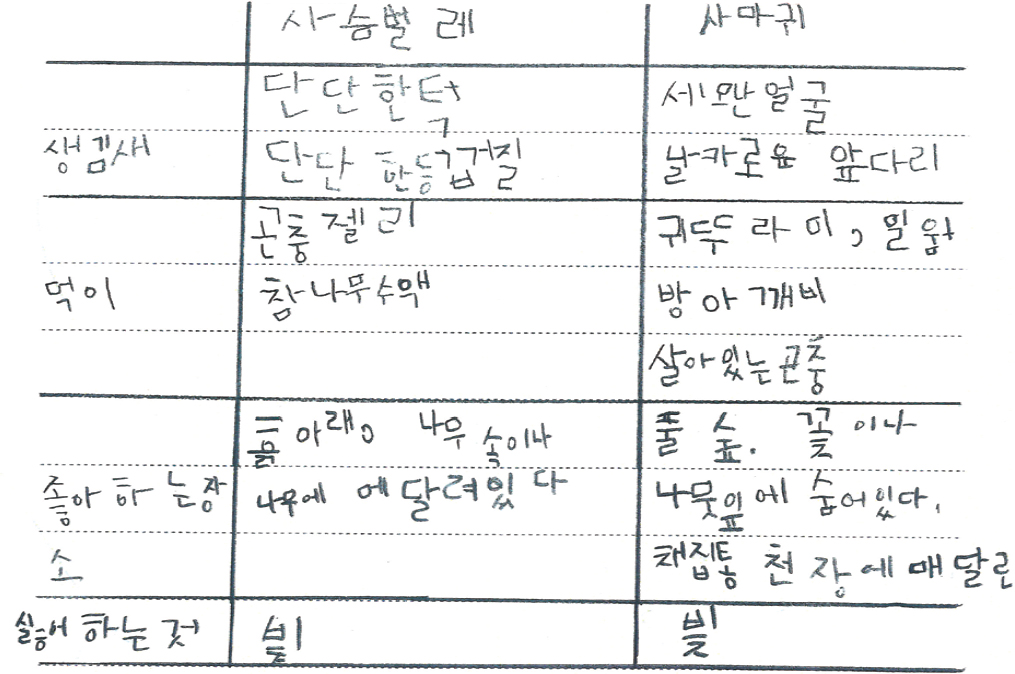 사슴벌레 사마귀
단단한턱 세모난얼굴
생김새 단단한등껍질 날카로운 앞다리
곤충젤리 귀뚜라미, 밀웜
먹이 참나무수액 방아깨비
살아있는곤충
흙아래, 나무속이나 풀숲. 꽃이나
좋아하는장 나무에 에달려있다 나뭇잎에 숨어있다.
소 채집통 천장에매달린
싫어하는것 빛 빛